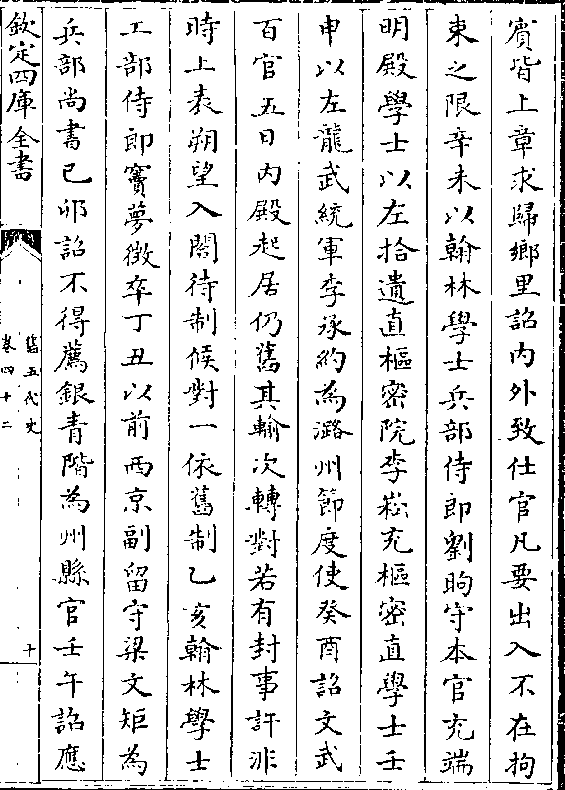 賔皆上章求歸鄉里詔内外致仕官凡要出入不在拘
束之限辛未以翰林學士兵部侍郎劉昫守本官充端
明殿學士以左拾遺直樞密院李崧充樞密直學士壬
申以左龍武統軍李承約為潞州節度使癸酉詔文武
百官五日内殿起居仍舊其輪次轉對若有封事許非
時上表朔望入閤待制候對一依舊制乙亥翰林學士
工部侍郎竇夢徵卒丁丑以前西京副留守梁文矩為
兵部尚書已卯詔不得薦銀青階為州縣官壬午詔應
欽定四庫全書
舊五代史
卷四十二
十